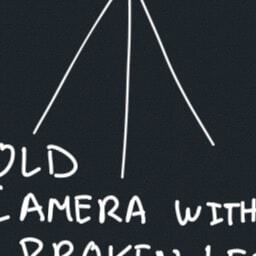 OLD
CAMERA WITH
BROKEN